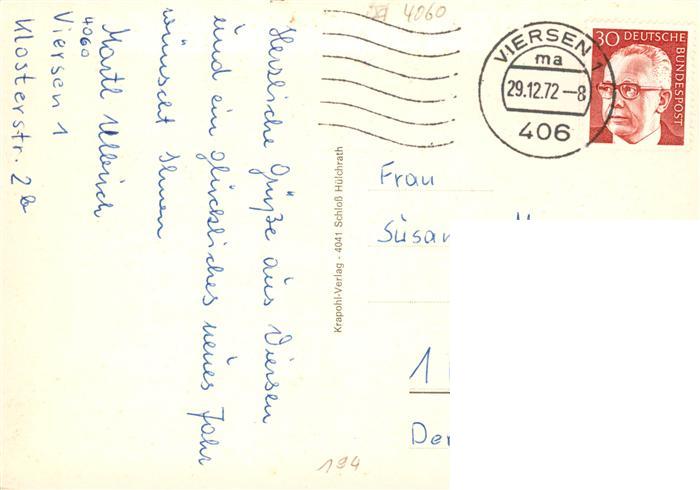 4060
Herzliche Grüße aus Viersen
und ein glückliches neues Jahr
wünscht Ihnen
4060
Viersen 1
Klosterstr. 2b
Krapohl-Verlag - 4041 Schloß Hülchrath
VIERSEN 1
ma
29.12.72 -8
406
30 DEUTSCHE
BUNDESPOST
Frau
1
194